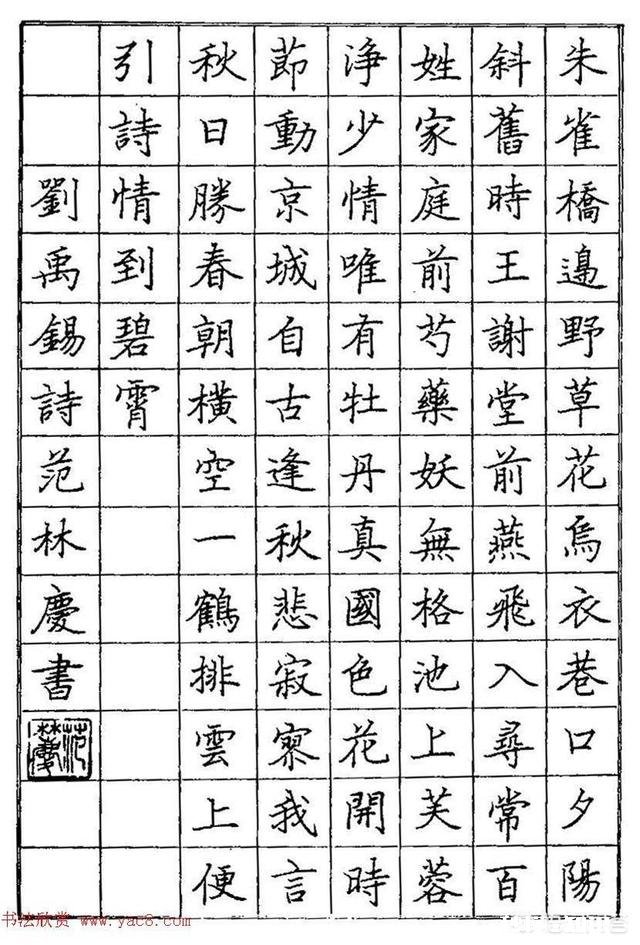 朱雀橋邊野草花烏衣巷口夕陽
斜舊時王謝堂前燕飛入尋常百
姓家庭前芍藥妖無格池上芙蓉
淨少情唯有牡丹真國色花開時
節動京城自古逢秋悲寂寥我言
秋日勝春朝橫空一鶴排雲上便
引詩情到碧霄
劉禹錫詩范林慶書
范林慶
书法欣赏 www.yac8.com